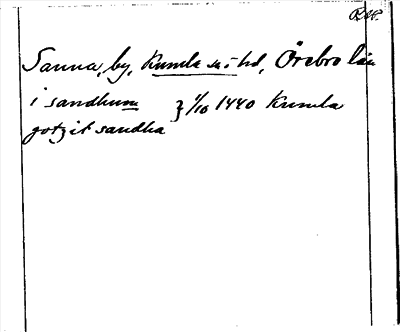 Sanna, by, Kumla sn o hd, Örebro län
i sandhum } 1/10 1440 Kumla
gotzit sandha